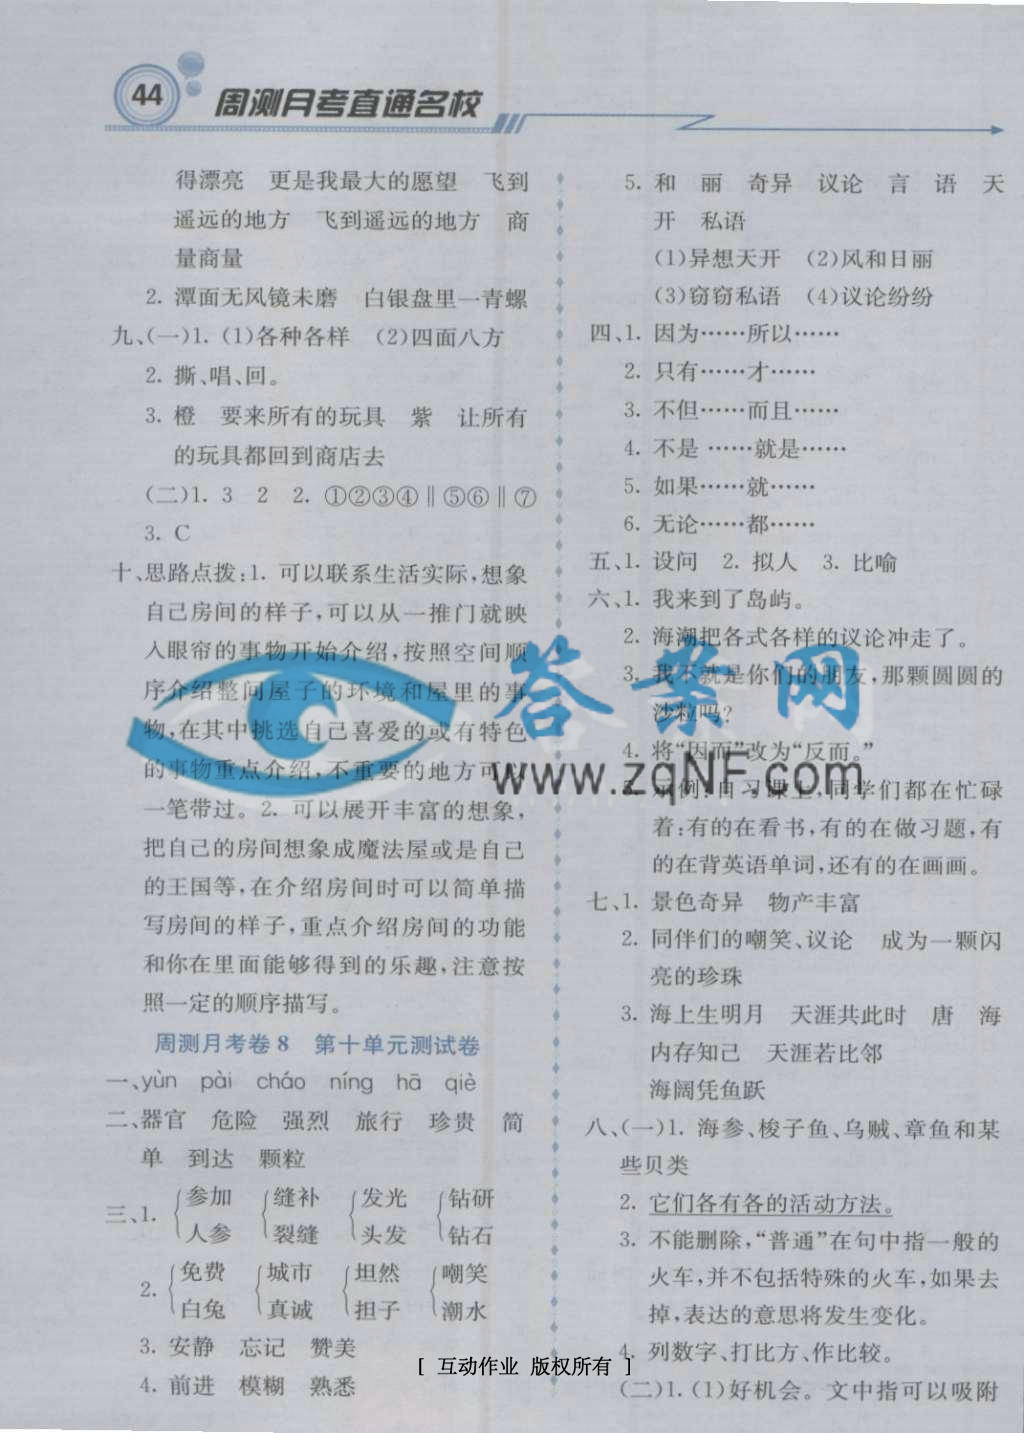 44
周测月考直通名校
得漂亮 更是我最大的愿望 飞到
遥远的地方 飞到遥远的地方 商
量商量
2. 潭面无风镜未磨 白银盘里一青螺
九、(一)1. (1)各种各样 (2)四面八方
2. 撕、唱、回。
3. 橙 要来所有的玩具 紫 让所有
的玩具都回到商店去
(二)1. 3 2 2. ①②③④‖⑤⑥‖⑦
3. C
十、思路点拨:1. 可以联系生活实际,想象
自己房间的样子,可以从一推门就映
入眼帘的事物开始介绍,按照空间顺
序介绍整间屋子的环境和屋里的事
物,在其中挑选自己喜爱的或有特色
的事物重点介绍,不重要的地方可以
一笔带过。2. 可以展开丰富的想象,
把自己的房间想象成魔法屋或是自己
的王国等,在介绍房间时可以简单描
写房间的样子,重点介绍房间的功能
和你在里面能够得到的乐趣,注意按
照一定的顺序描写。
周测月考卷8 第十单元测试卷
一、yùn pài cháo níng hā qiè
二、器官 危险 强烈 旅行 珍贵 简
单 到达 颗粒
三、1. {参加 {缝补 {发光 {钻研
人参 裂缝 头发 钻石
2. {免费 {城市 {坦然 {嘲笑
白兔 真诚 担子 潮水
3. 安静 忘记 赞美
4. 前进 模糊 熟悉
5. 和 丽 奇异 议论 言 语 天
开 私语
(1)异想天开 (2)风和日丽
(3)窃窃私语 (4)议论纷纷
四、1. 因为……所以……
2. 只有……才……
3. 不但……而且……
4. 不是……就是……
5. 如果……就……
6. 无论……都……
五、1. 设问 2. 拟人 3. 比喻
六、1. 我来到了岛屿。
2. 海潮把各式各样的议论冲走了。
3. 我不就是你们的朋友,那颗圆圆的
沙粒吗?
4. 将“因而”改为“反而。”
5. 示例:自习课上,同学们都在忙碌
着:有的在看书,有的在做习题,有
的在背英语单词,还有的在画画。
七、1. 景色奇异 物产丰富
2. 同伴们的嘲笑、议论 成为一颗闪
亮的珍珠
3. 海上生明月 天涯共此时 唐 海
内存知己 天涯若比邻
海阔凭鱼跃
八、(一)1. 海参、梭子鱼、乌贼、章鱼和某
些贝类
2. 它们各有各的活动方法。
3. 不能删除,“普通”在句中指一般的
火车,并不包括特殊的火车,如果去
掉,表达的意思将发生变化。
4. 列数字、打比方、作比较。
(二)1. (1)好机会。文中指可以吸附
答案网
www.zqNF.com
[ 互动作业 版权所有 ]